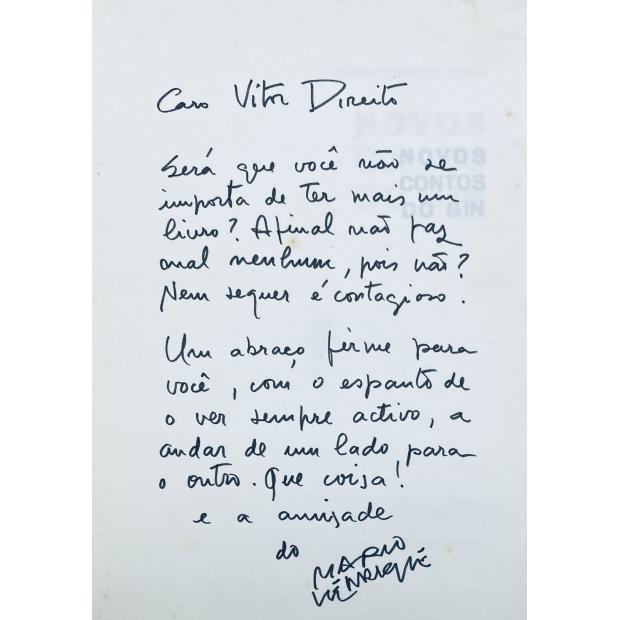 Caro Vitor Direito
Será que você não se
importa de ter mais um
livro? Afinal não faz
mal nenhum, pois não?
Nem sequer é contagioso.
Um abraço, firme para
você, com o espanto de
o ver sempre activo, a
andar de um lado para
o outro. Que coisa!
e a amizade
do
MARIO
HENRIQUE
NOVOS
NOVOS
CONTOS
DO GIN